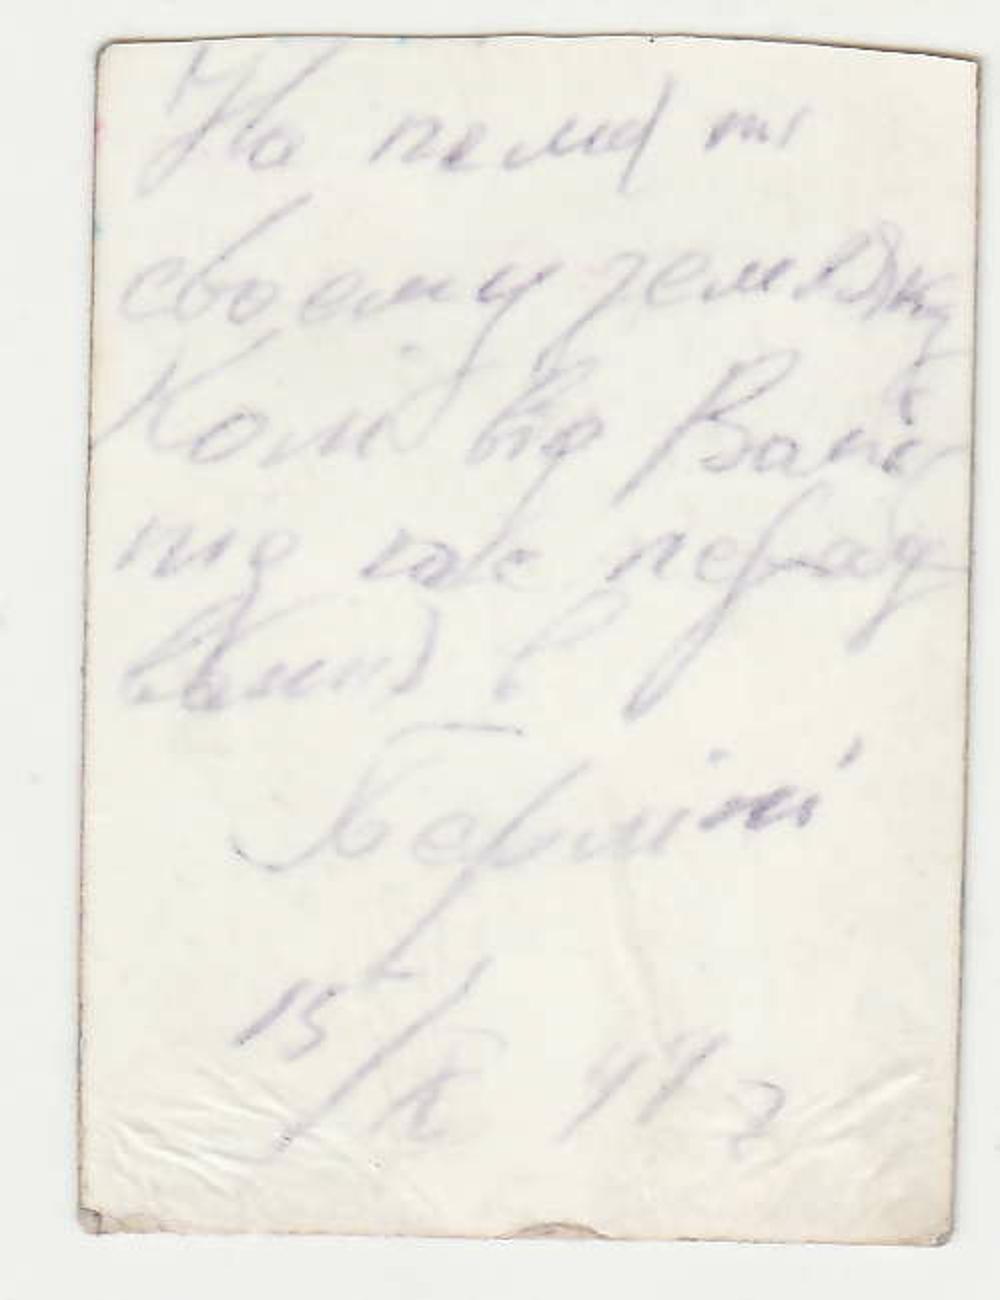 На памяті
своему земляку
Колі від Вані
під час перебу
вання в
Берліні
15/X 44 г